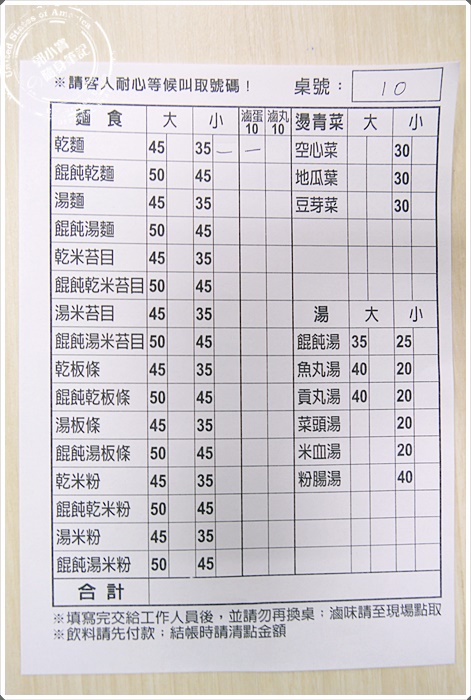 United States of America
※請客人耐心等候叫取號碼！ 桌號： 10
麵食 大 小 滷蛋10 滷丸10 燙青菜 大 小
乾麵 45 35 一 一 空心菜 30
餛飩乾麵 50 45 地瓜葉 30
湯麵 45 35 豆芽菜 30
餛飩湯麵 50 45
乾米苔目 45 35
餛飩乾米苔目 50 45
湯米苔目 45 35 湯 大 小
餛飩湯米苔目 50 45 餛飩湯 35 25
乾板條 45 35 魚丸湯 40 20
餛飩乾板條 50 45 貢丸湯 40 20
湯板條 45 35 菜頭湯 20
餛飩湯板條 50 45 米血湯 20
乾米粉 45 35 粉腸湯 40
餛飩乾米粉 50 45
湯米粉 45 35
餛飩湯米粉 50 45
合計
※填寫完交給工作人員後，並請勿再換桌：滷味請至現場點取
※飲料請先付款：結帳時請清點金額